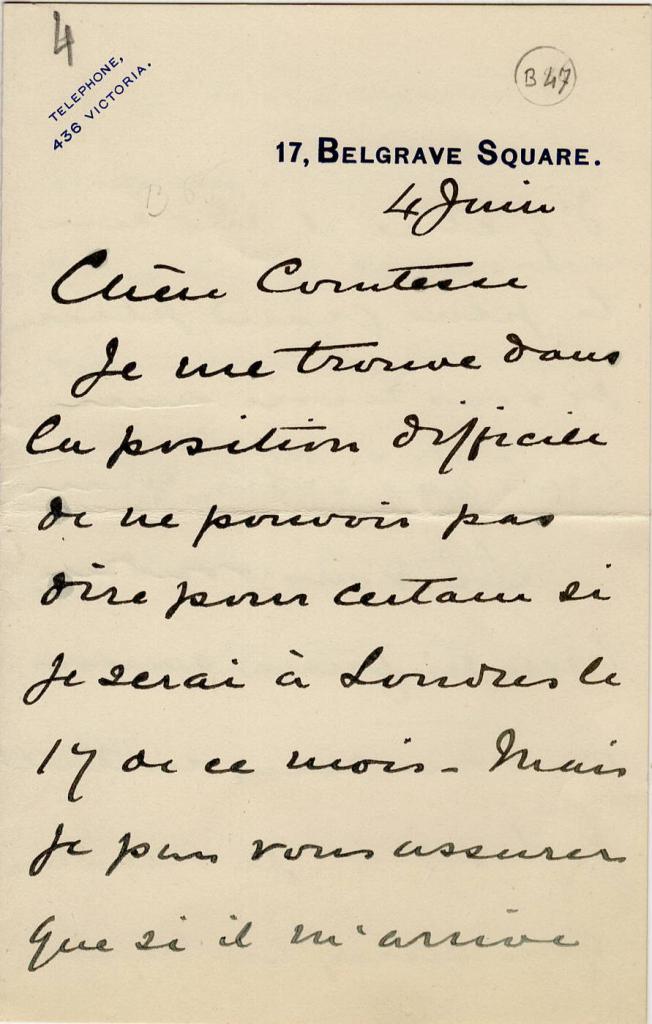 4
B 47
TELEPHONE,
436 VICTORIA.
17, BELGRAVE SQUARE.
4 Juin
Chère Comtesse
Je me trouve dans
la position difficile
de ne pouvoir pas
dire pour certain si
je serai à Londres le
17 de ce mois - Mais
je puis vous assurer
que si il m'arrive